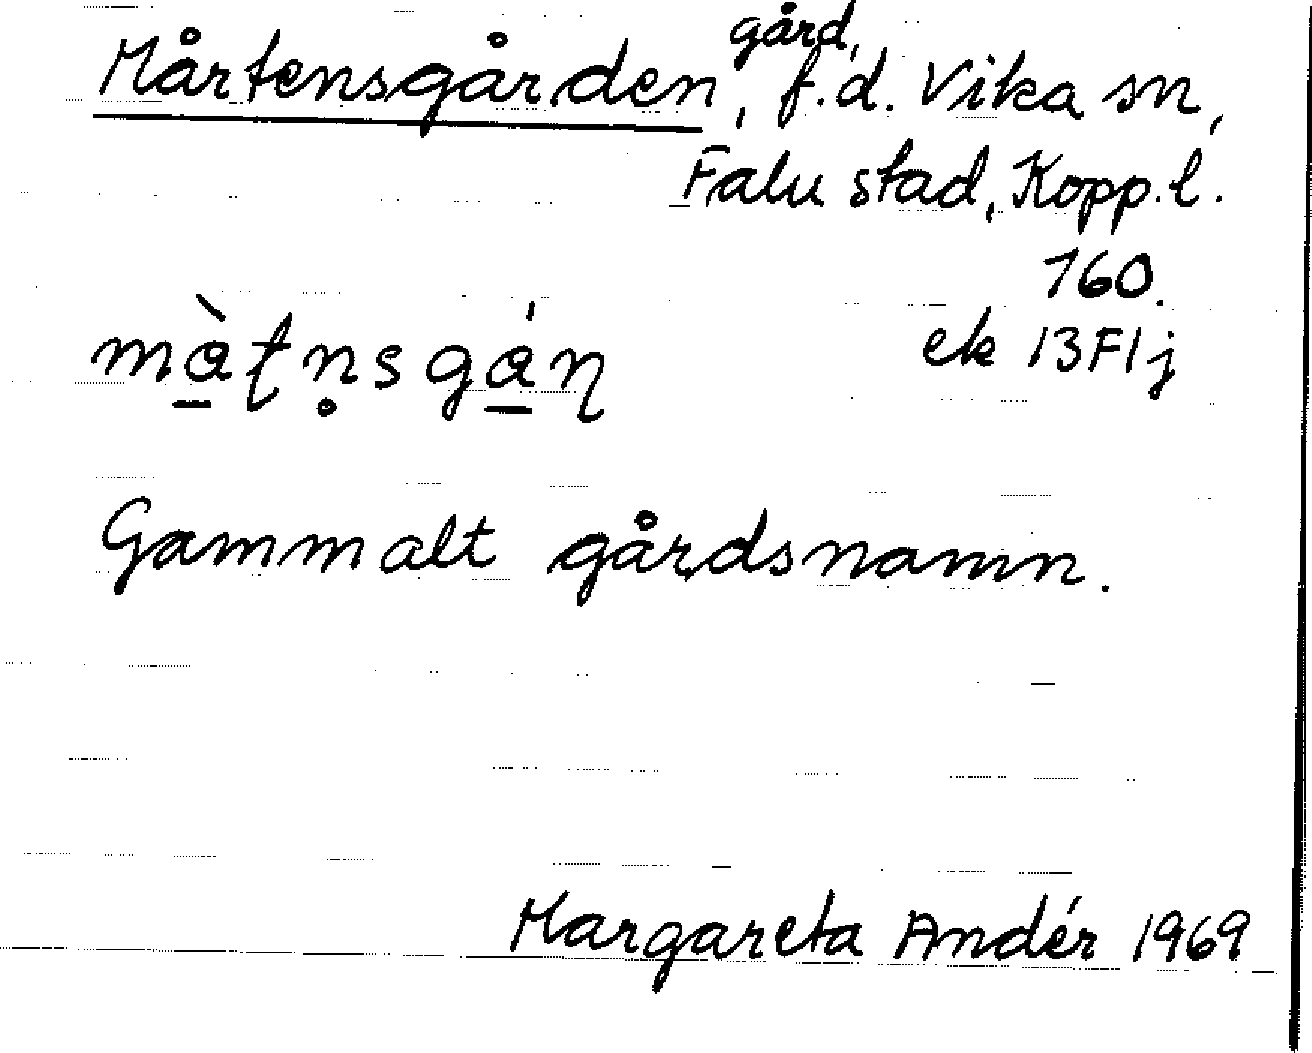 Mårtensgården, gård, f.d. Vika sn,
Falu stad, Kopp.l.
160.
ek 13F1j
mà̱ʈṇsgá̱ɳ
Gammalt gårdsnamn.
Margareta Andér 1969